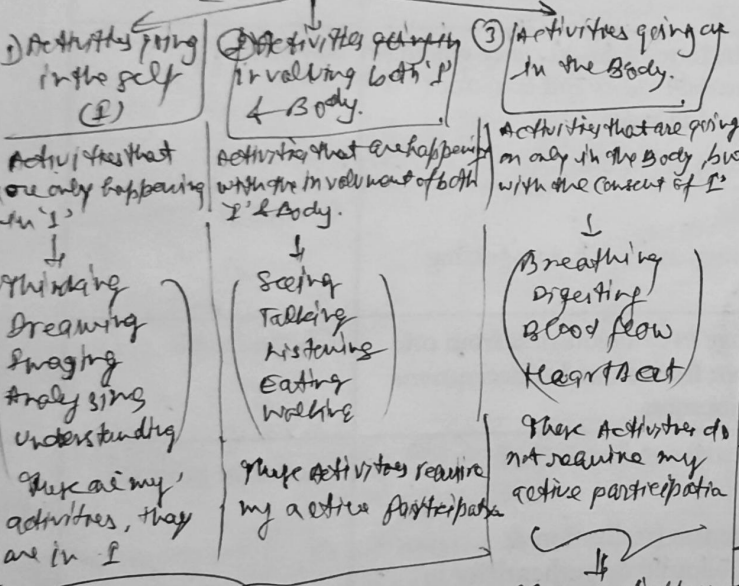 1) Activities going
in the self
(I)
Activities that
are only happening
in 'I'
Thinking
Dreaming
Imaging
Analysing
understanding
These are my
activities, they
are in I
2 Activities going in
involving both 'I'
& Body.
Activities that are happening
with the involvment of both
'I' & Body.
Seeing
Talking
Listening
Eating
Walking
These Activities require
my active Participation
3 Activities going on
in the Body.
Activities that are going
on only in the Body, but
with the consent of I'
Breathing
Digesting
Blood flow
HeartBeat
These Activities do
not require my
active participation